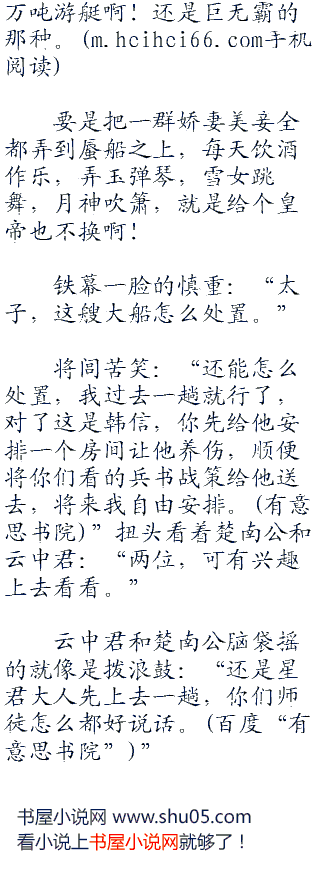 万吨游艇啊！还是巨无霸的
那种。(m.hcihci66.com手机
阅读)
要是把一群娇妻美妾全
都弄到蜃船之上，每天饮酒
作乐，弄玉弹琴，雪女跳
舞，月神吹箫，就是给个皇
帝也不换啊！
铁幕一脸的慎重：“太
子，这艘大船怎么处置。”
将闾苦笑：“还能怎么
处置，我过去一趟就行了，
对了这是韩信，你先给他安
排一个房间让他养伤，顺便
将你们看的兵书战策给他送
去，将来我自由安排。(有意
思书院)”扭头看着楚南公和
云中君：“两位，可有兴趣
上去看看。”
云中君和楚南公脑袋摇
的就像是拨浪鼓：“还是星
君大人先上去一趟，你们师
徒怎么都好说话。(百度“有
意思书院”)”
书屋小说网 www.shu05.com
看小说上书屋小说网就够了！